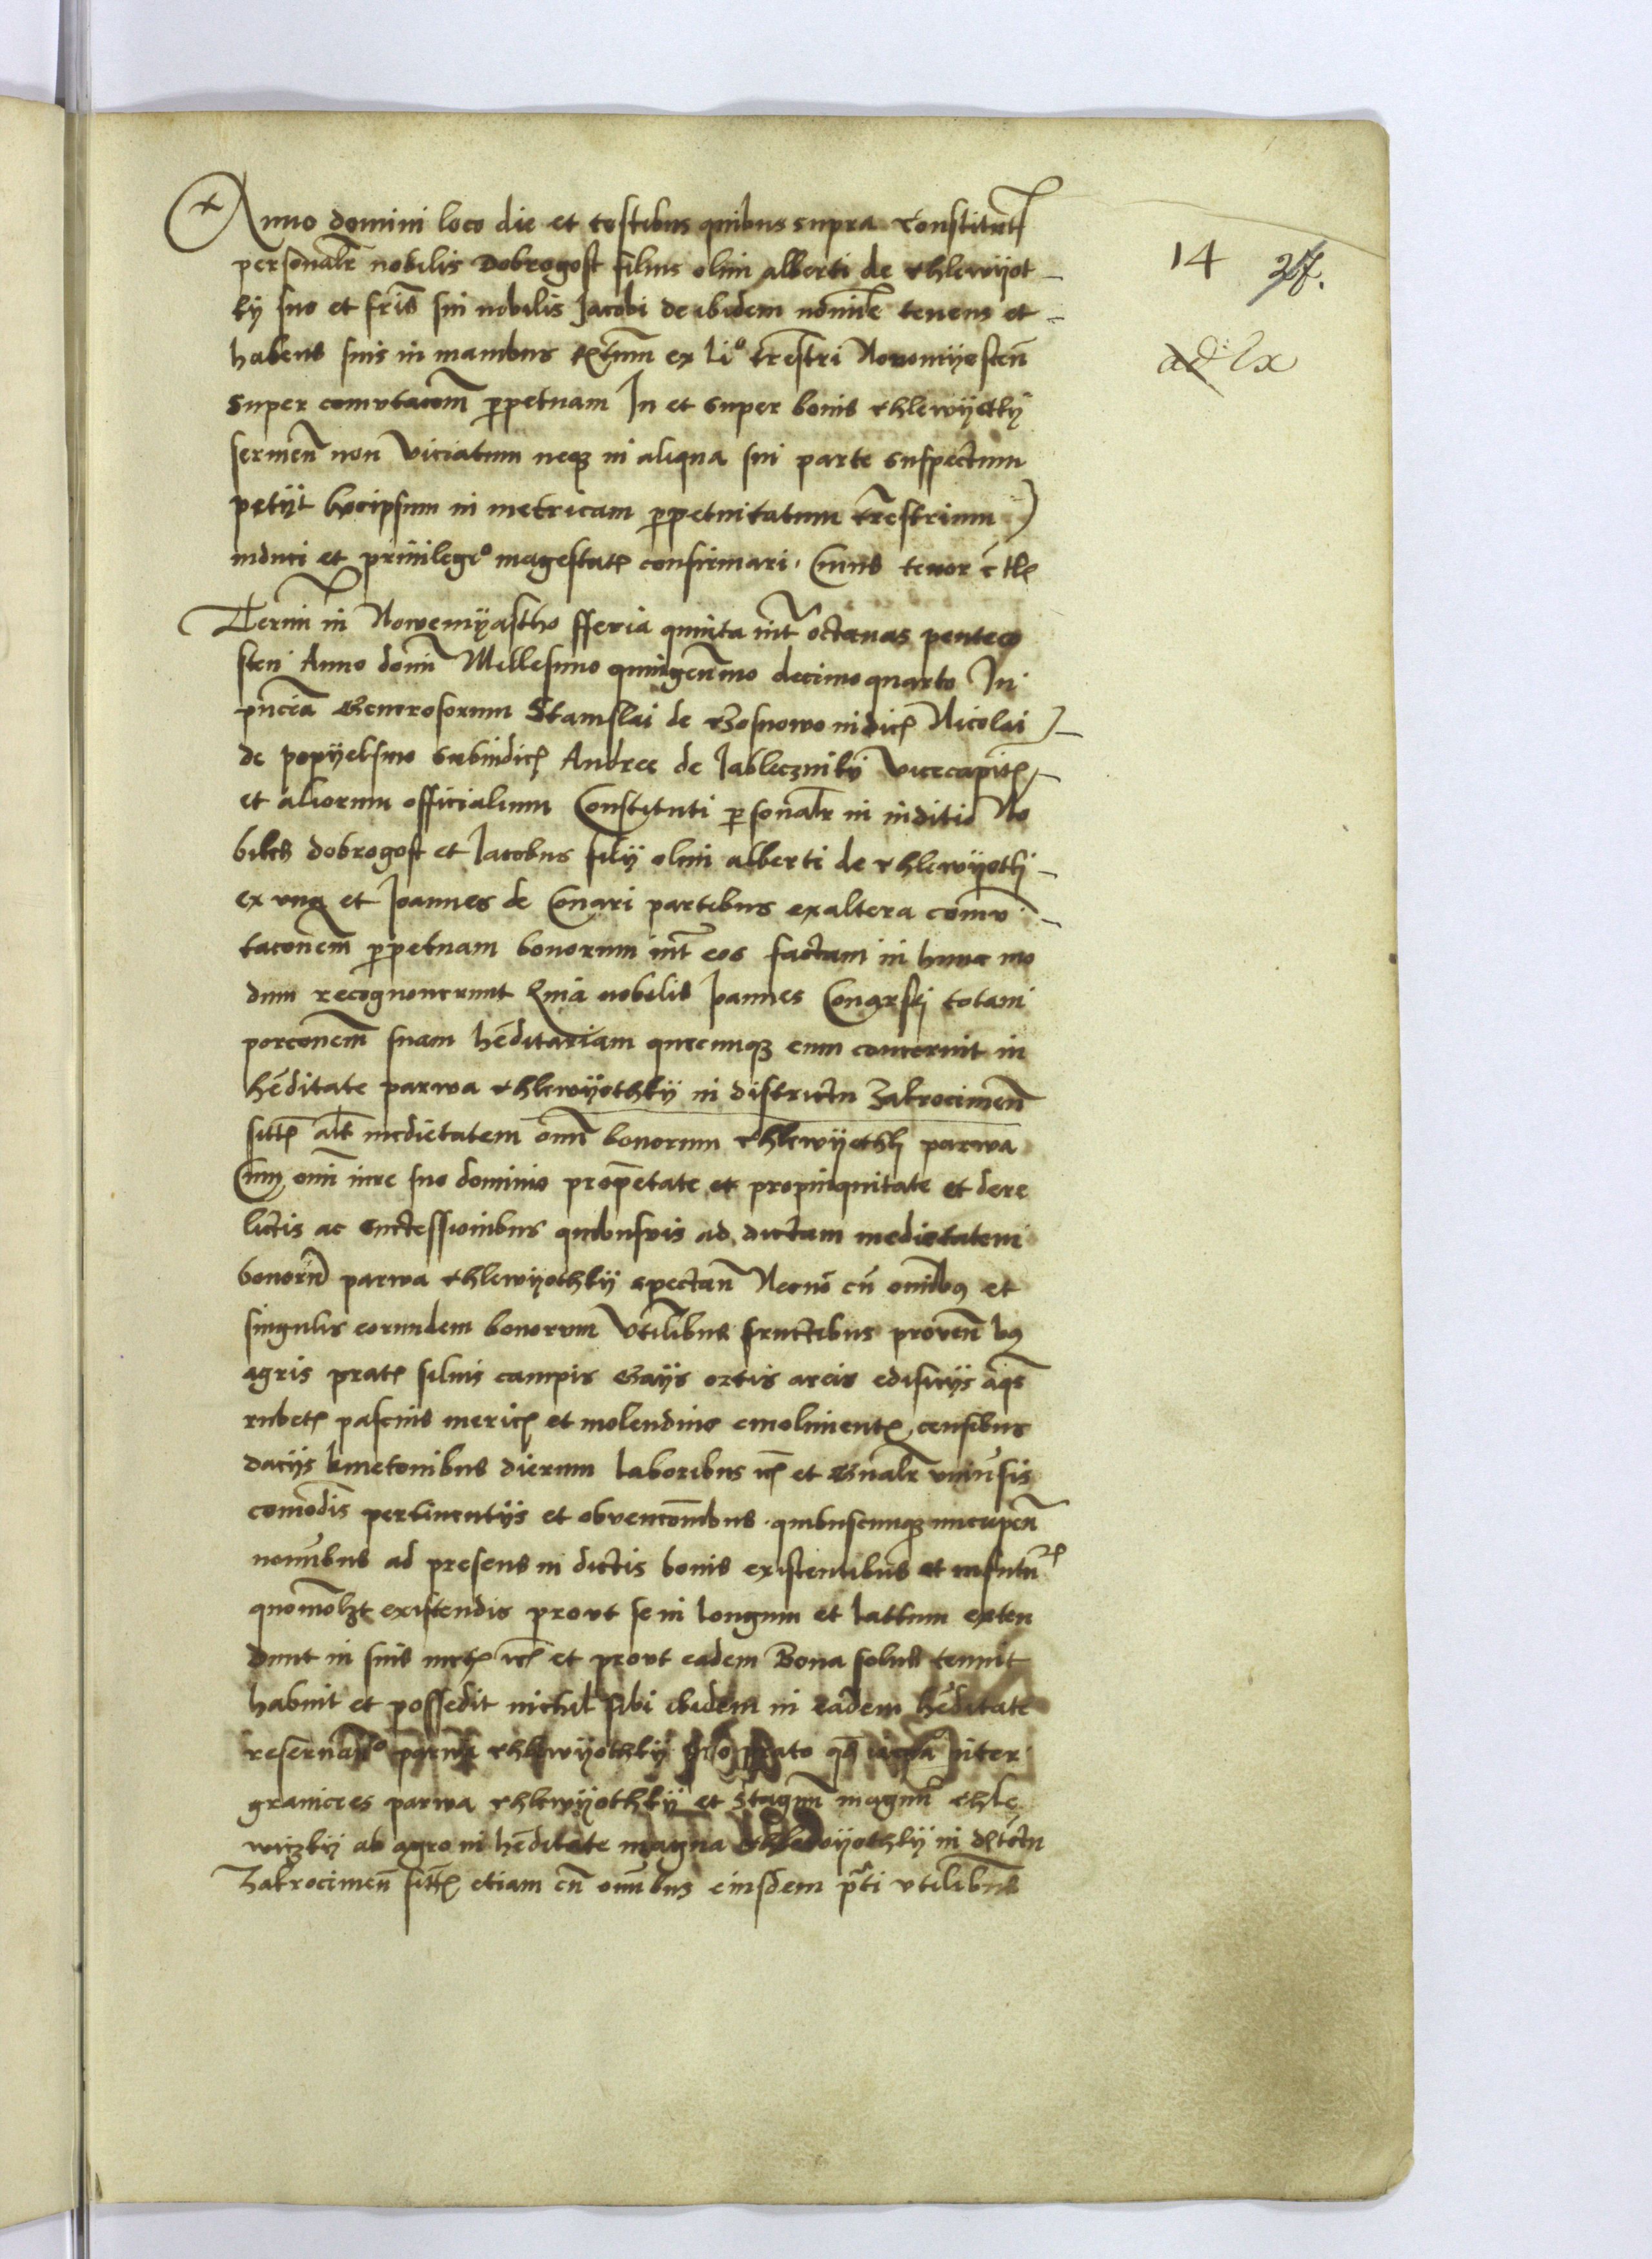 Anno domini loco die et testibus quibus supra Constitut
personalr nobilis Dobrogost filius olim Alberti de Chlewyot
ky suo et fris sui nobilis Jacobi de ibidem nomine tenens et
habens suis in manibus ex lio trestri Novomyesten
super comutacom perpetuam In et super bonis Chlewyotky
sermen non viciatum neque in aliqua sui parte suspectum
petyt hocipsum in metricam perpetuitatum trestrium
induci et privilegio magestatis confirmari Cuius tenor
Termi in Nowemyastho fferia quinta int octavas penteco
sten Anno domi Millesimo quingenmo decimoquarto In
pncia Generosorum Stanislai de Gosnowo iudicis Nicolai
de popyelsino subiudicis Andree de Jableczniky vicecapitis
et aliorum officialium Constituti personalr in iuditio No
biles dobrogost et Jacobus filij olim alberti de Chlewyothky
ex una et Joannes de Conari partibus exaltera comu
taconem perpetuam bonorum int eos factam in hunc mo
dum recognoverunt Quia nobilis Joannes Conarsky totam
porconem suam heditariam quecunque eum concernit in
heditate parwa Chlewyothky in districtu Zakrocimen
sitte alt medietatem omn bonorum Chlewyethky parwa
Cum omi iure suo dominio propetate et propinquitate et dere
lictis ac suctessionibus quibusvis ad dictam medietatem
bonorum parwa Chlewyothky spectan Necno cu omibus et
singulis eorundem bonorum utilibus fructibus proven bus
agris pratis silvis campis Gayis ortis areis edificiis aqs
rubetis pascuis mericis et molendinis emolimentis censibus
daciis kmetonibus dierum laboribus et Gnalr univsis
comodis pertinentiis et obvencombus quibuscunque nucupen
nonibus ad presens in dictis bonis existentibus et infutu
quomolzt existendis prout se in longum et lattum exten
dunt in suis metis et prout eadem Bona solus tenuit
habuit et possedit nichil sibi ibidem in eadem heditate
reservando parwa Chlewyothky prato iter
granicies parwa Chlewyothky et Stagnum magnum Chle
wizky ab agro in heditate magna Chlewyothky in dstctu
Zakrocimen sitte etiam cu omibus eiusdem pti utilibus
14 27.
ad